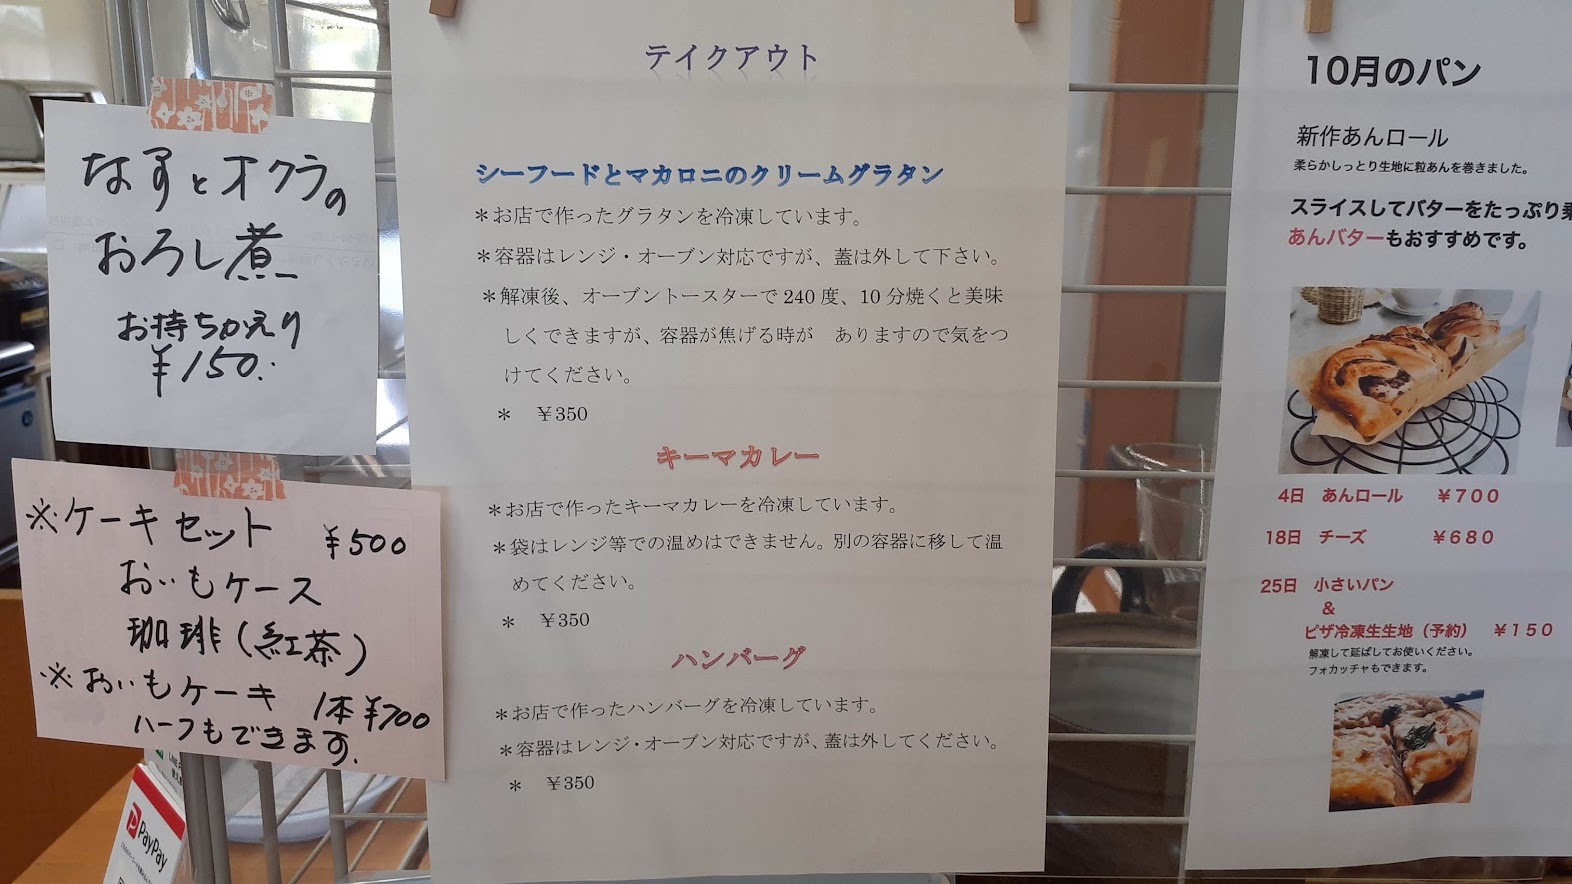 なすとオクラの
おろし煮
お持ちかえり
¥150.
※ケーキセット ¥500
おいもケース
珈琲(紅茶)
※おいもケーキ 1本¥700
ハーフもできます.
PayPay
テイクアウト
シーフードとマカロニのクリームグラタン
＊お店で作ったグラタンを冷凍しています。
＊容器はレンジ・オーブン対応ですが、蓋は外して下さい。
＊解凍後、オーブントースターで 240 度、10 分焼くと美味
しくできますが、容器が焦げる時が　ありますので気をつ
けてください。
＊　￥350
キーマカレー
＊お店で作ったキーマカレーを冷凍しています。
＊袋はレンジ等での温めはできません。別の容器に移して温
めてください。
＊　￥350
ハンバーグ
＊お店で作ったハンバーグを冷凍しています。
＊容器はレンジ・オーブン対応ですが、蓋は外してください。
＊　￥350
10月のパン
新作あんロール
柔らかしっとり生地に粒あんを巻きました。
スライスしてバターをたっぷり
あんバターもおすすめです。
4日　あんロール　￥７００
18日　チーズ　￥６８０
25日　小さいパン
&
ピザ冷凍生生地（予約）　￥１５０
解凍して延ばしてお使いください。
フォカッチャもできます。